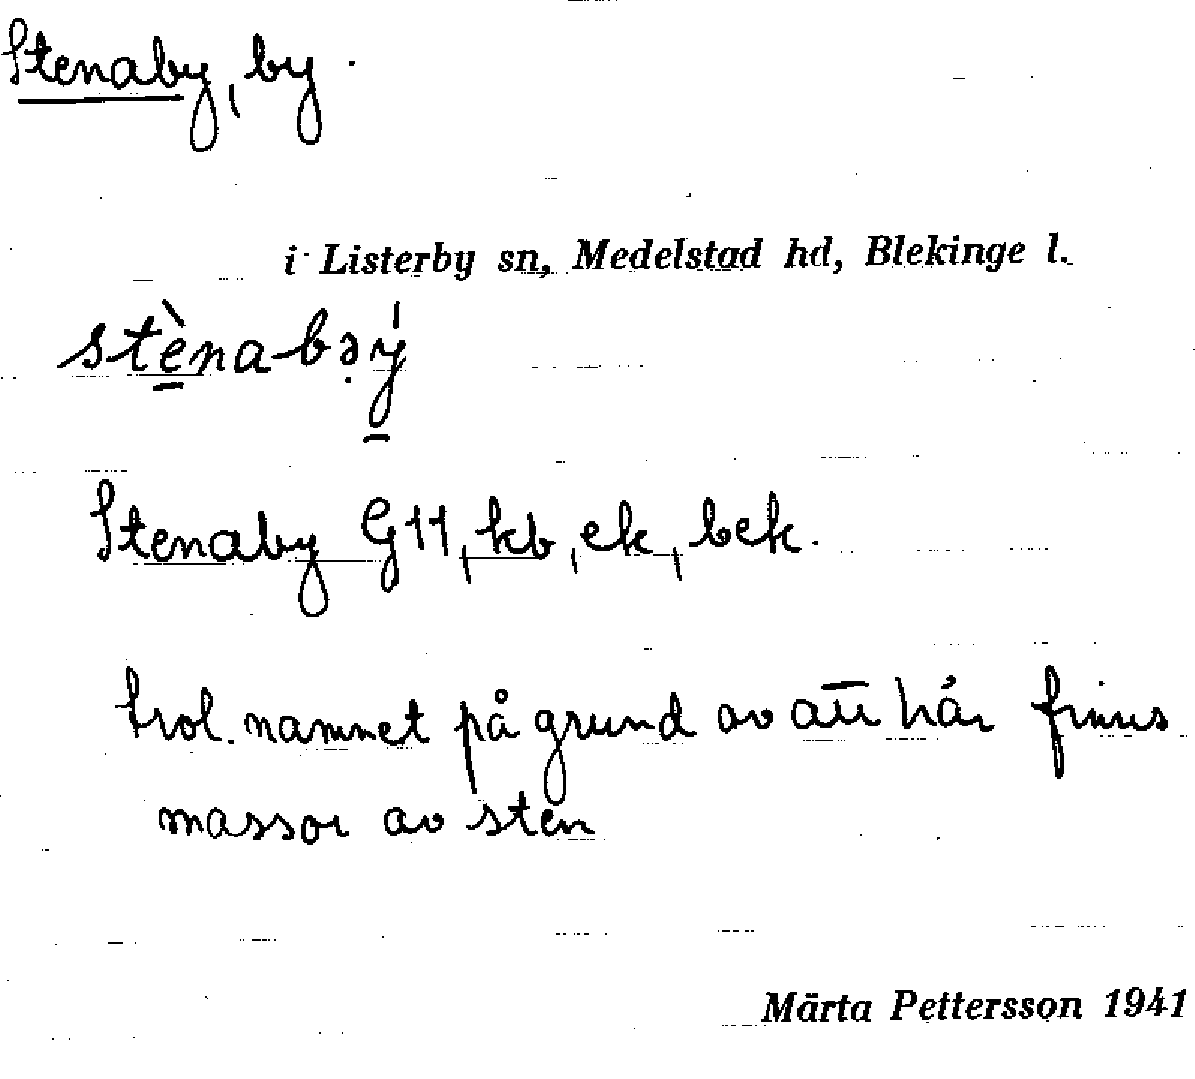 Stenaby, by.
i Listerby sn, Medelstad hd, Blekinge l.
stènabəý
Stenaby G11, kb, ek, bek.
trol. namnet på grund av att här finns
massor av sten
Märta Pettersson 1941